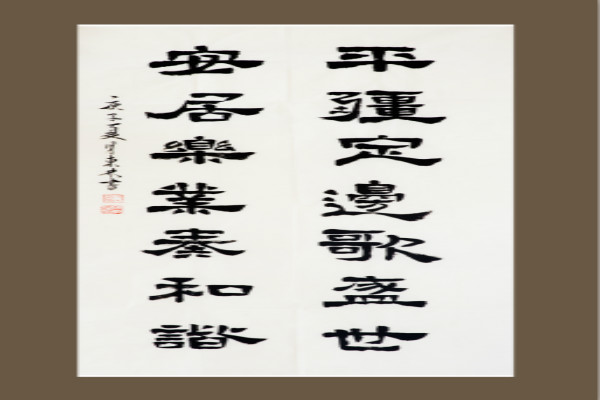 平疆定邊歌盛世
安居樂業奏和諧
庚子夏月東共書